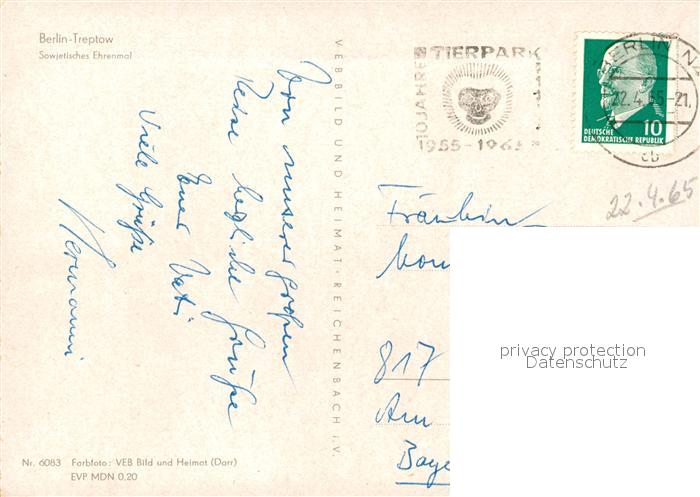 Berlin-Treptow
Sowjetisches Ehrenmal
Von unserer großen
Reise herzliche Grüße
Euer Vati
Viele Grüße
Hermann
VEB BILD UND HEIMAT · REICHENBACH i. V.
TIERPARK
10 JAHRE
1955 - 1965
BERLIN N
22.4.65-21
cb
10
DEUTSCHE
DEMOKRATISCHE REPUBLIK
22.4.65
Fräulein
817
Am
Baye
privacy protection
Datenschutz
Nr. 6083 Farbfoto: VEB Bild und Heimat (Darr)
EVP MDN 0,20